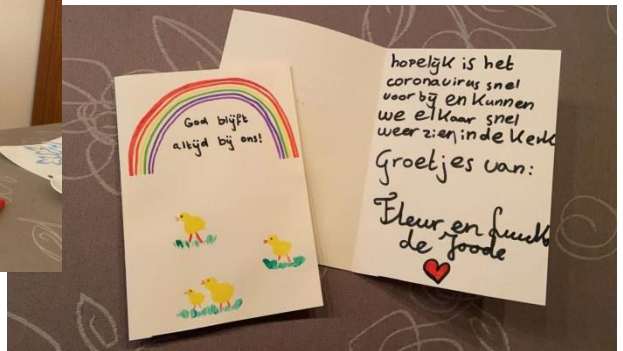 God blijft
altijd bij ons!
hopelijk is het
coronavirus snel
voorbij en kunnen
we elkaar snel
weer zien in de kerk
Groetjes van:
Fleur en
de Joode